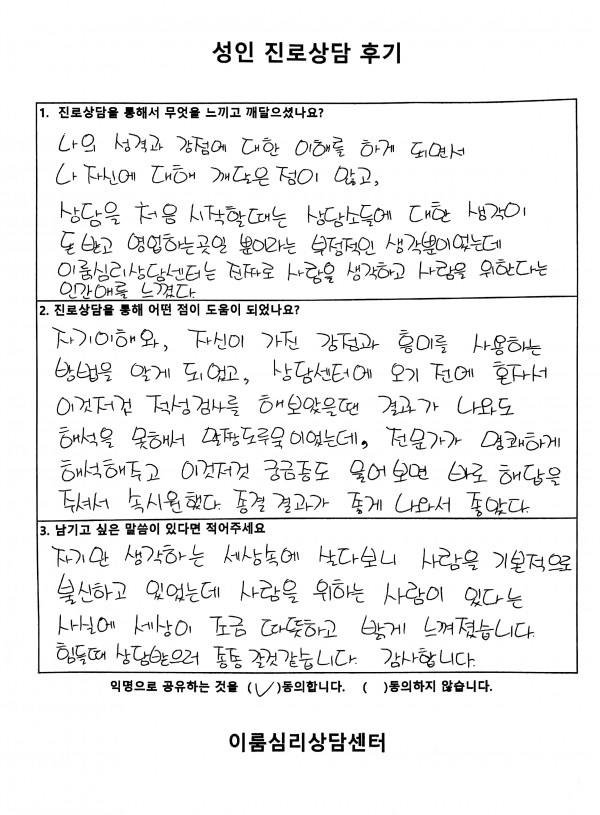 성인 진로상담 후기
1. 진로상담을 통해서 무엇을 느끼고 깨달으셨나요?
나의 성격과 강점에 대한 이해를 하게 되면서
나 자신에 대해 깨달은 점이 많고,
상담을 처음 시작할때는 상담소들에 대한 생각이
돈 받고 영업하는곳일 뿐이라는 부정적인 생각뿐이었는데
이룸심리상담센터는 진짜로 사람을 생각하고 사람을 위한다는
인간애를 느꼈다.
2. 진로상담을 통해 어떤 점이 도움이 되었나요?
자기이해와, 자신이 가진 강점과 흥미를 사용하는
방법을 알게 되었고, 상담센터에 오기 전에 혼자서
이것저것 적성검사를 해보았을땐 결과가 나와도
해석을 못해서 말짱도루묵이었는데, 전문가가 명쾌하게
해석해주고 이것저것 궁금증도 물어보면 바로 해답을
주셔서 속시원했다. 종결 결과가 좋게 나와서 좋았다.
3. 남기고 싶은 말씀이 있다면 적어주세요
자기만 생각하는 세상속에 살다보니 사람을 기본적으로
불신하고 있었는데 사람을 위하는 사람이 있다는
사실에 세상이 조금 따뜻하고 밝게 느껴졌습니다.
힘들때 상담받으러 종종 갈것같습니다. 감사합니다.
익명으로 공유하는 것을 (✓)동의합니다. ( )동의하지 않습니다.
이룸심리상담센터